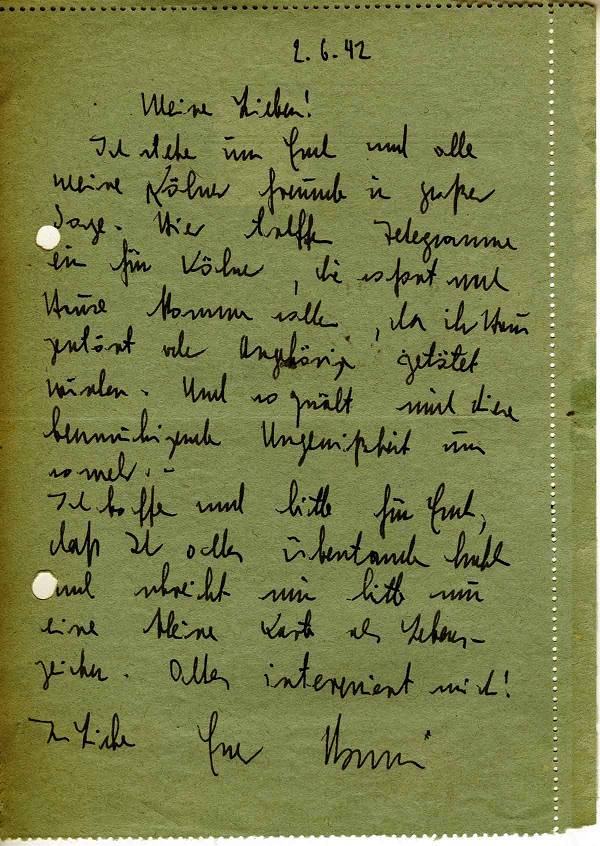 2.6.42
Meine Lieben!
Ich stehe um Euch und alle
meine Kölner Freunde in großer
Sorge. Hier treffen Telegramme
ein für Kölner, die sofort nach
Hause kommen sollen, da ihr Haus
zerstört oder Angehörige getötet
wurden. Und so quält mich diese
beunruhigende Ungewißheit um
so mehr. -
Ich hoffe und bitte für Euch,
daß Ihr alles überstanden habt
und schreibt mir bitte nur
eine kleine Karte als Lebens-
zeichen. Alles interessiert mich!
In Liebe Euer